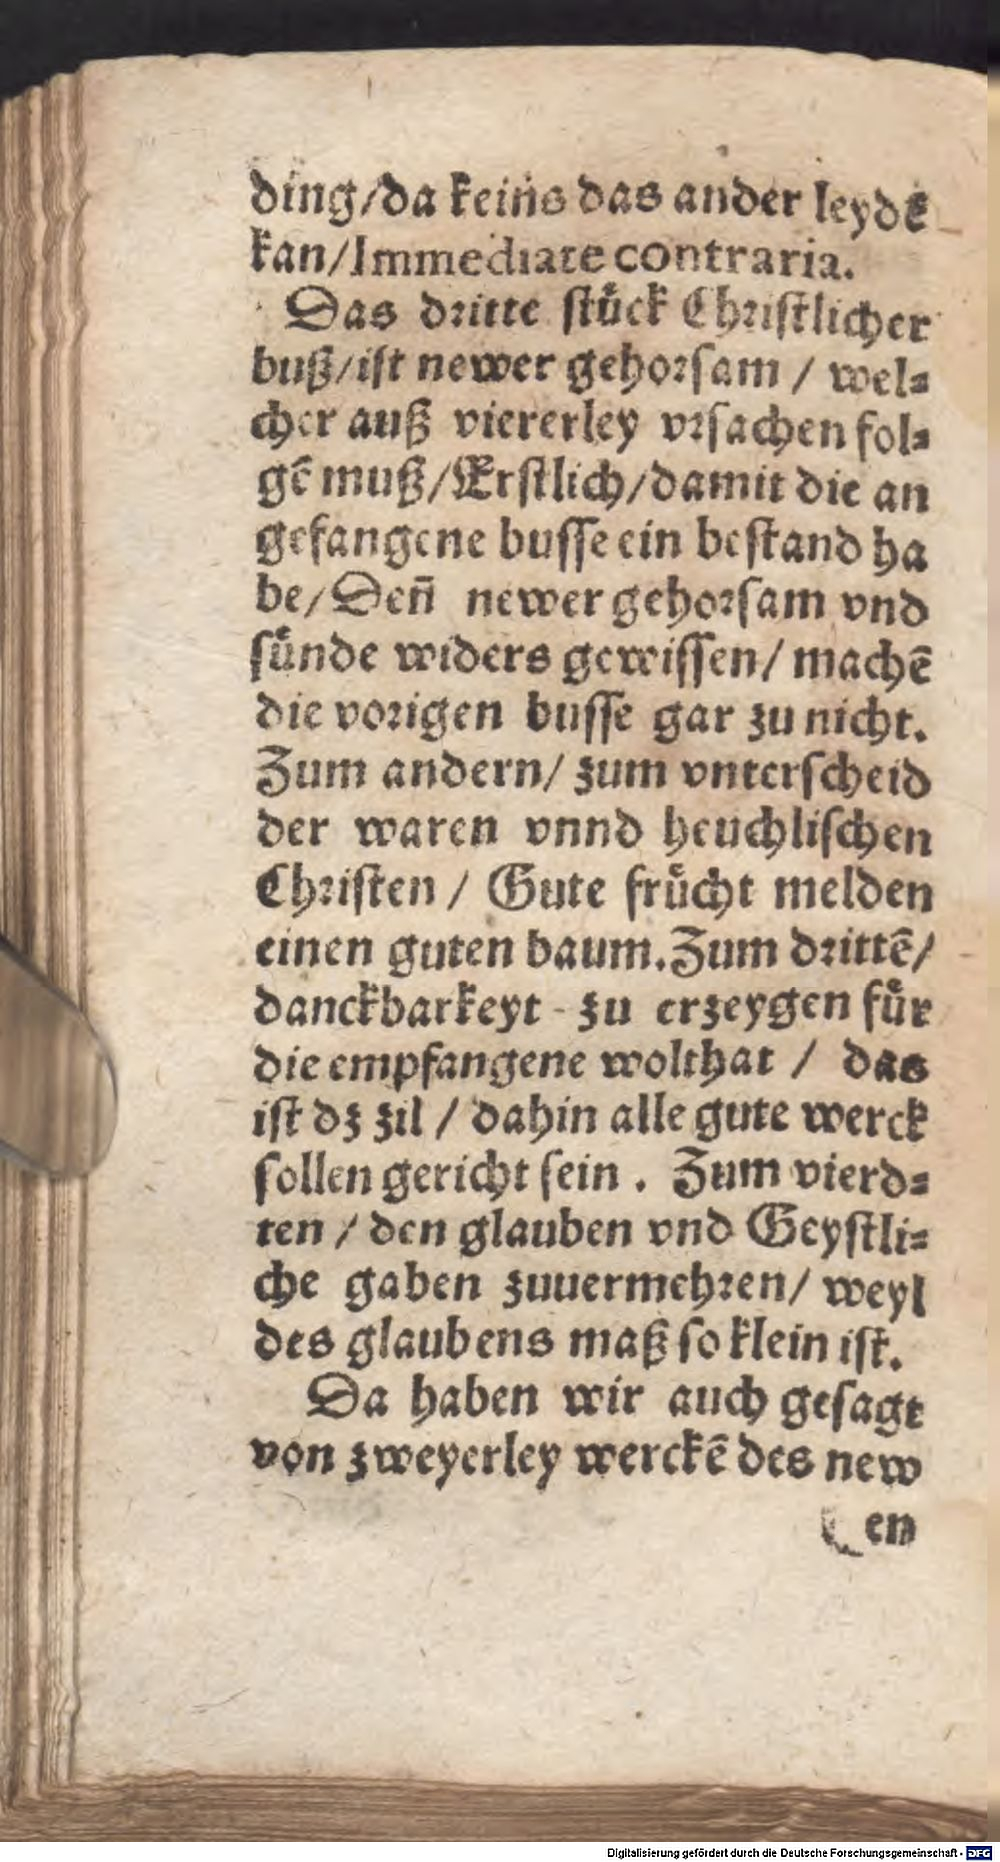 ding/da keins das ander leydē
kan/Immediate contraria.
Das dritte stuͤck Christlicher
buß/ist newer gehorsam / wel⸗
cher auß viererley vrsachen fol⸗
gē muß/Erstlich/damit die an
gefangene busse ein bestand ha
be/Deñ newer gehorsam vnd
suͤnde widers gewissen/ machē
die vorigen busse gar zu nicht.
Zum andern/ zum vnterscheid
der waren vnnd heuchlischen
Christen / Gute fruͤcht melden
einen guten baum. Zum drittē/
danckbarkeyt zu erzeygen fuͤr
die empfangene wolthat / das
ist dz zil / dahin alle gute werck
sollen gericht sein . Zum vierd⸗
ten / den glauben vnd Geystli⸗
che gaben zuuermehren/ weyl
des glaubens maß so klein ist.
Da haben wir auch gesagt
von zweyerley werckē des new
en
Digitalisierung gefördert durch die Deutsche Forschungsgemeinschaft - DFG